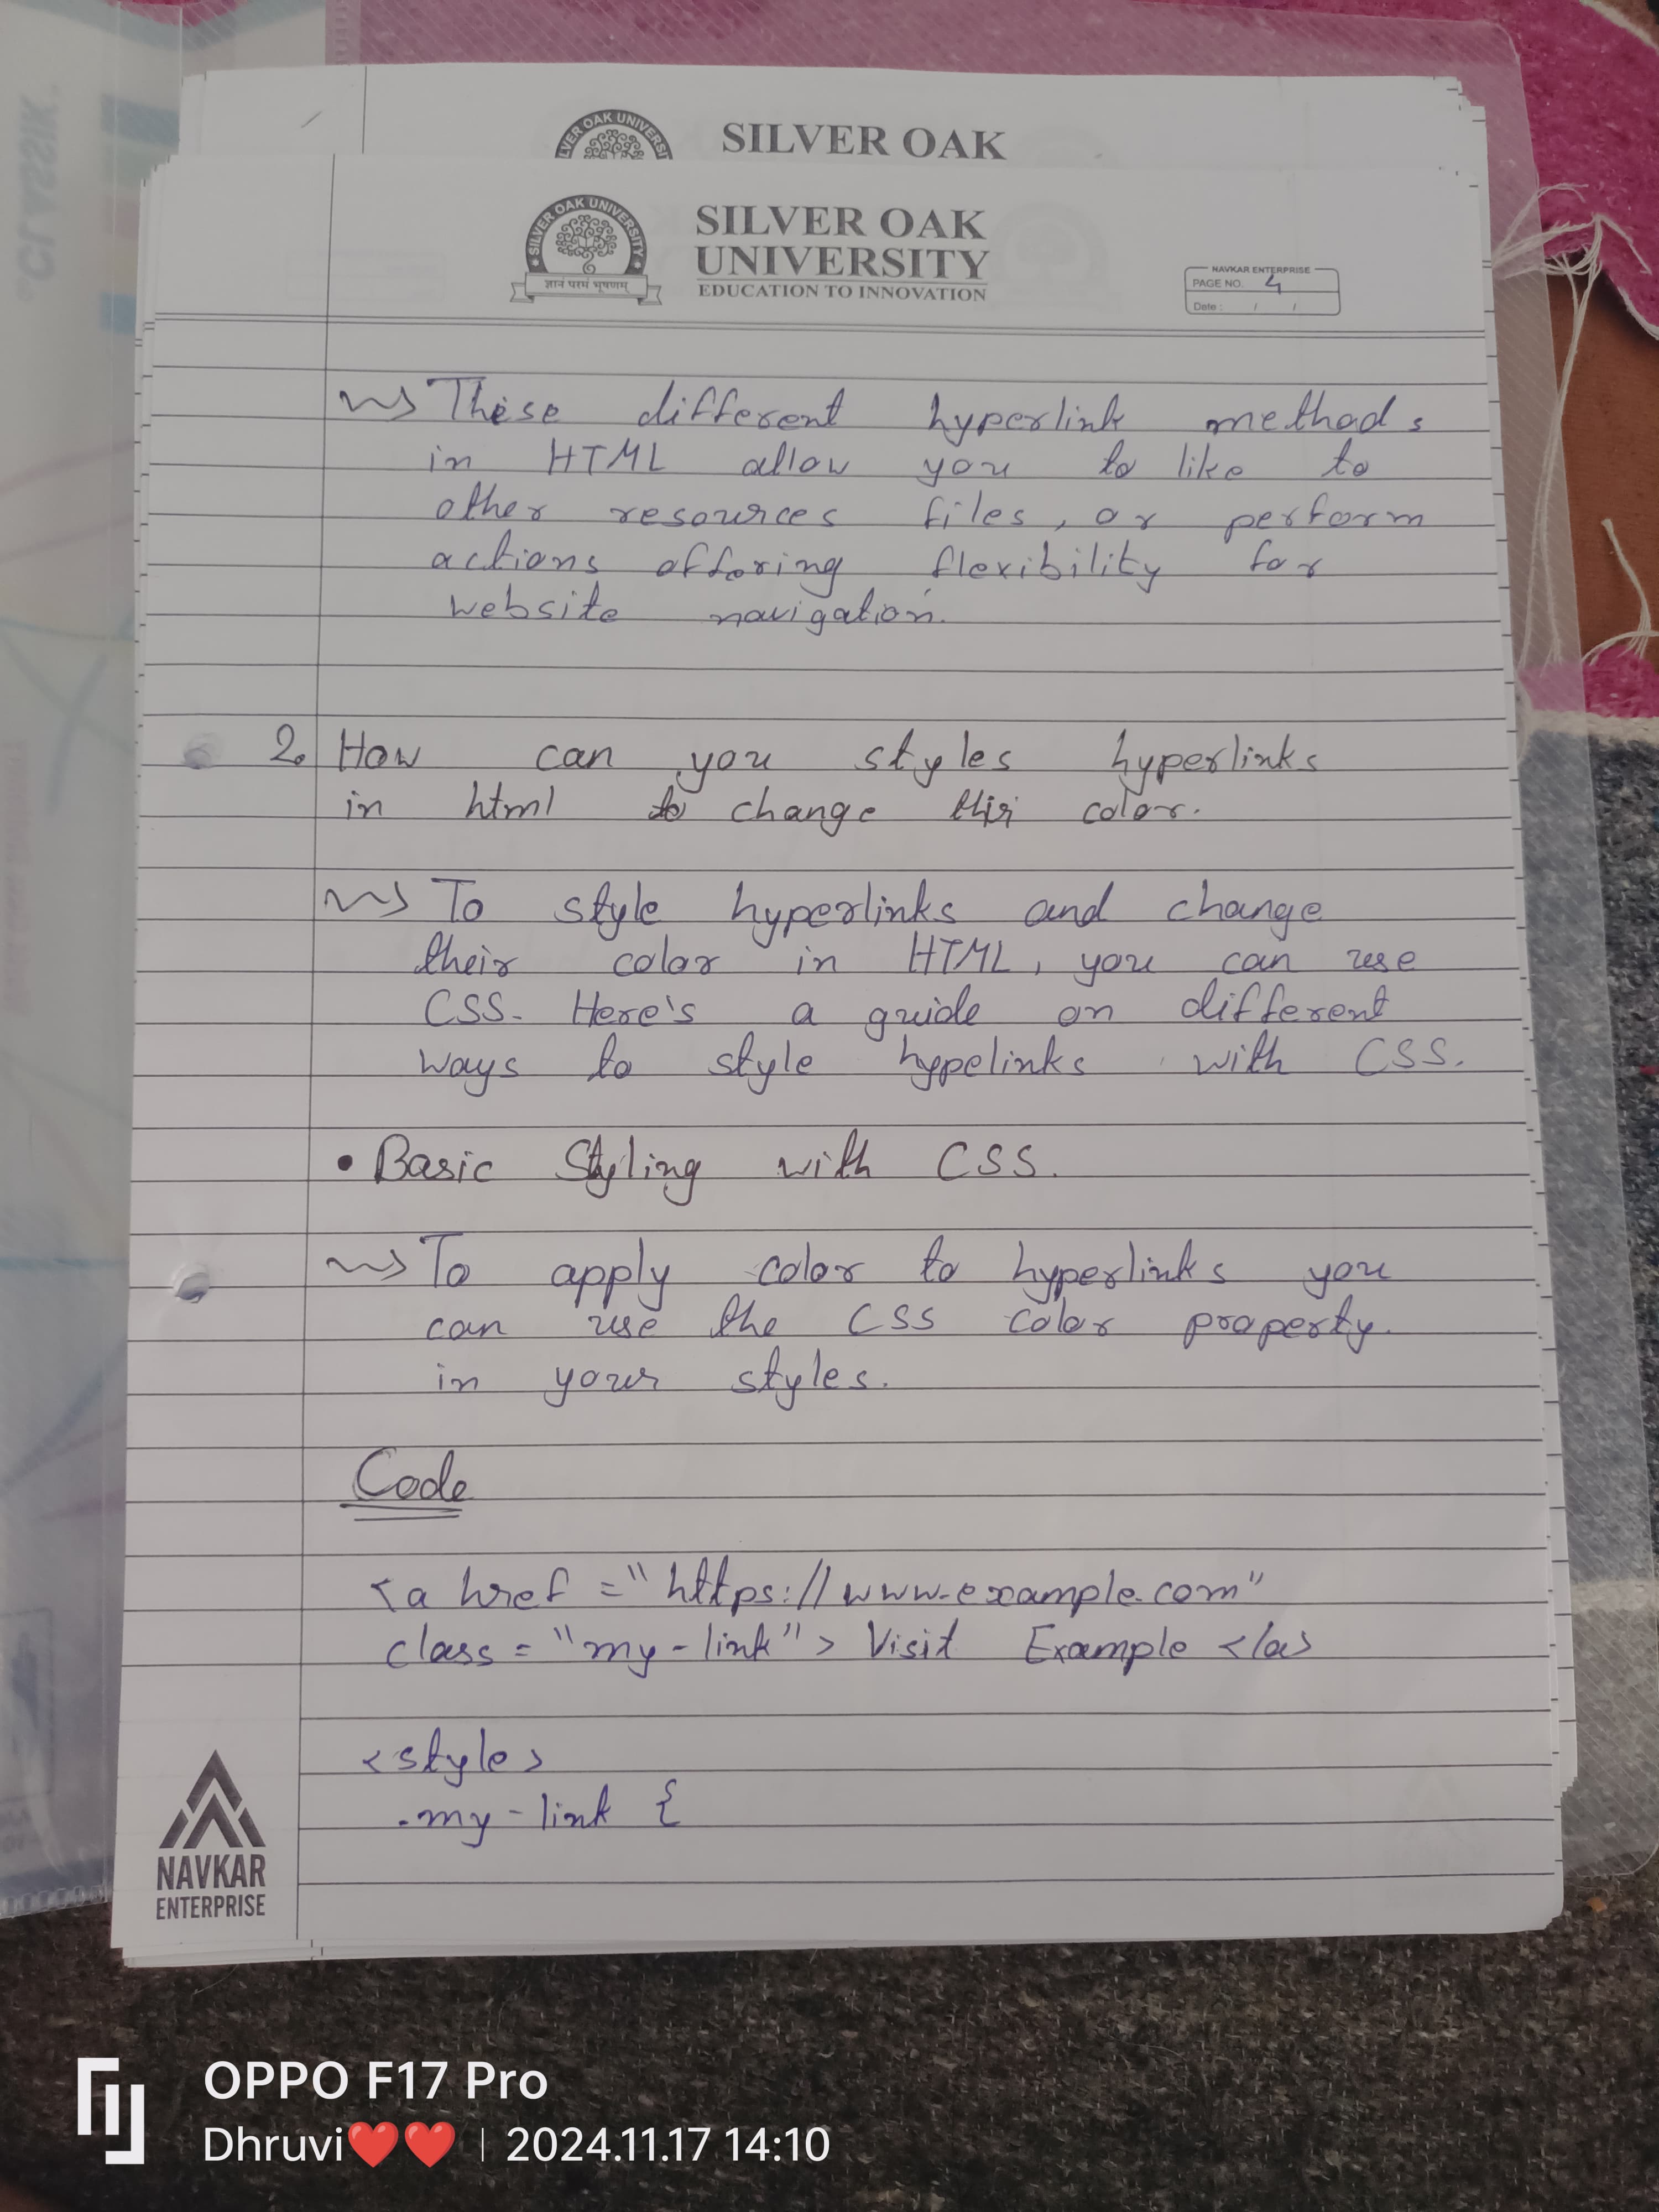 CLASSIK
SILVER OAK UNIVERSITY
SILVER OAK
SILVER OAK UNIVERSITY
ज्ञानं परमं भूषणम्
SILVER OAK
UNIVERSITY
EDUCATION TO INNOVATION
NAVKAR ENTERPRISE
PAGE NO. 4
Date : / /
These different hyperlink methods
in HTML allow you to like to
other resources files, or perform
actions offoring flexibility for
website navigation.
2. How can you styles hyperlinks
in html to change thir color.
To style hyperlinks and change
their color in HTML, you can use
CSS. Here's a guide on different
ways to style hypelinks with CSS.
• Basic Styling with CSS.
To apply color to hyperlinks you
can use the CSS color property.
in your styles.
Code
<a href ="https://www.example.com"
class = "my-link"> Visit Example </a>
<style>
.my-link {
NAVKAR
ENTERPRISE
OPPO F17 Pro
Dhruvi❤️❤️ | 2024.11.17 14:10